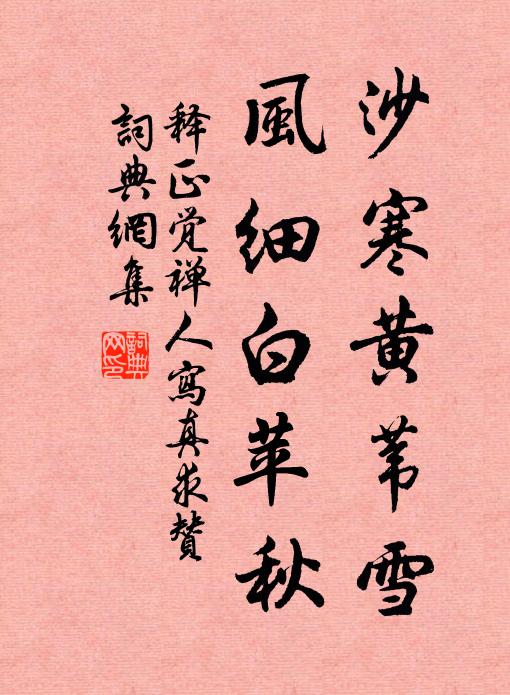 沙寒黄苇雪
風细白苹秋
释正觉禅人寫真求賛
詞典網集
詞典
网印